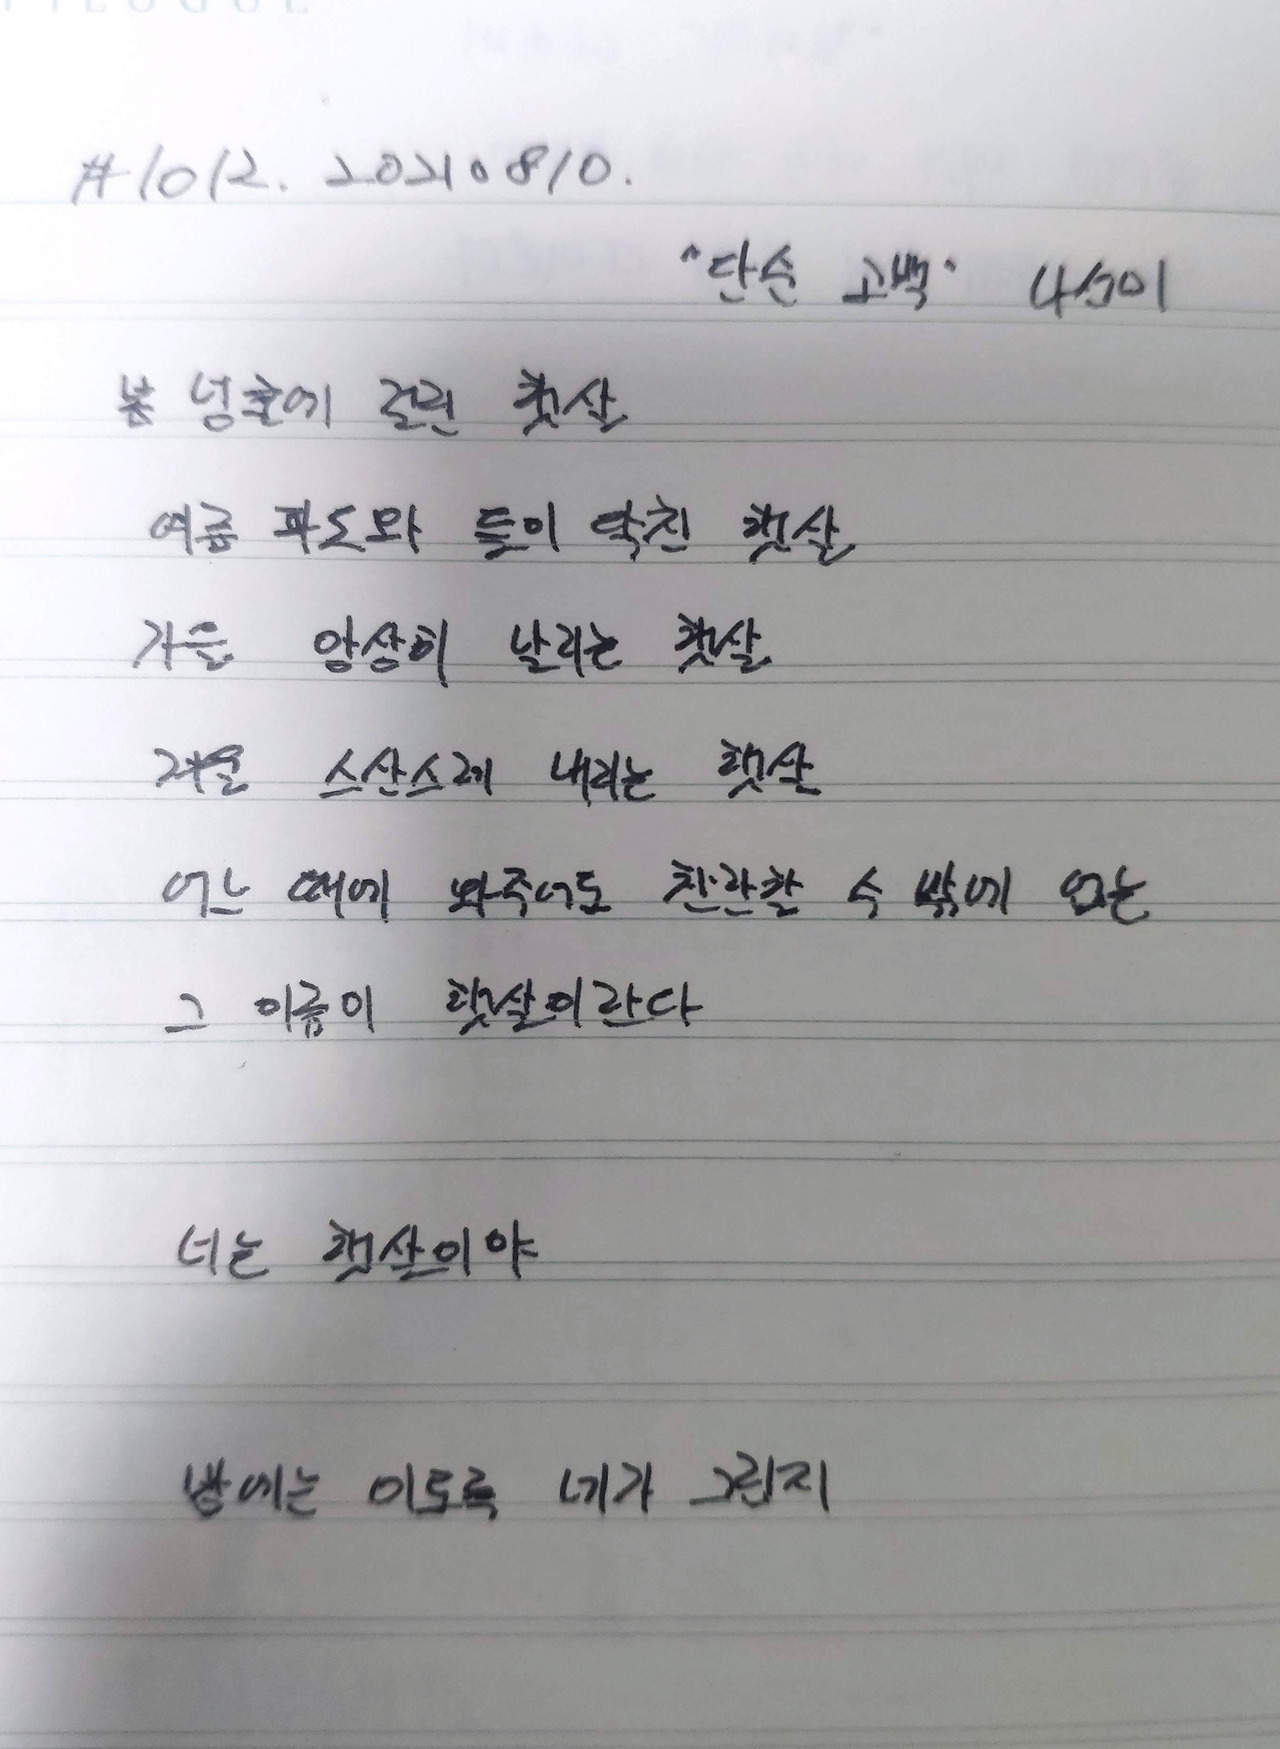 #1012. 20210810.
"단순 고백" 나선미
봄 넝쿨에 걸린 햇살
여름 파도와 들이 닥친 햇살
가을 앙상히 날리는 햇살
겨울 스산스레 내리는 햇살
어느 때에 와주어도 찬란할 수 밖에 없는
그 이름이 햇살이란다
너는 햇살이야
밤에는 이토록 네가 그린지